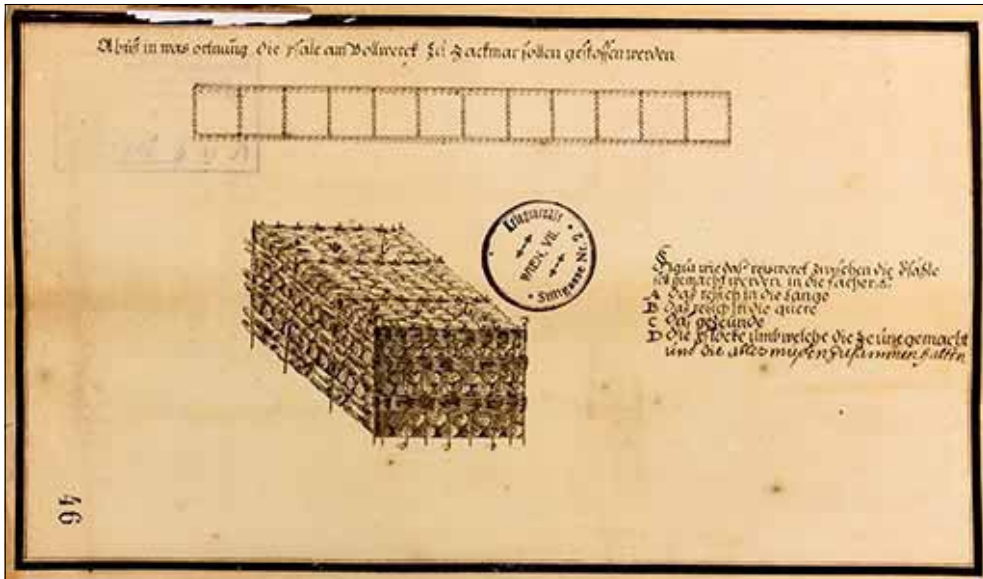 Abriß in was ordnung die pfäle am Bollwerck zu Zackmar sollen gestossen werden
Kriegsarchiv
WIEN, VII.
Stiftgasse Nr. 2
Figur wie das reiswerck zwischen die Pfäle
sol gemacht werden in die fächer.
A Das reisich in die länge
B Das reisich in die quere
C Das
D Die pflöcke umb welche die zeüne gemacht
und die alles müßen zusammen halten
46